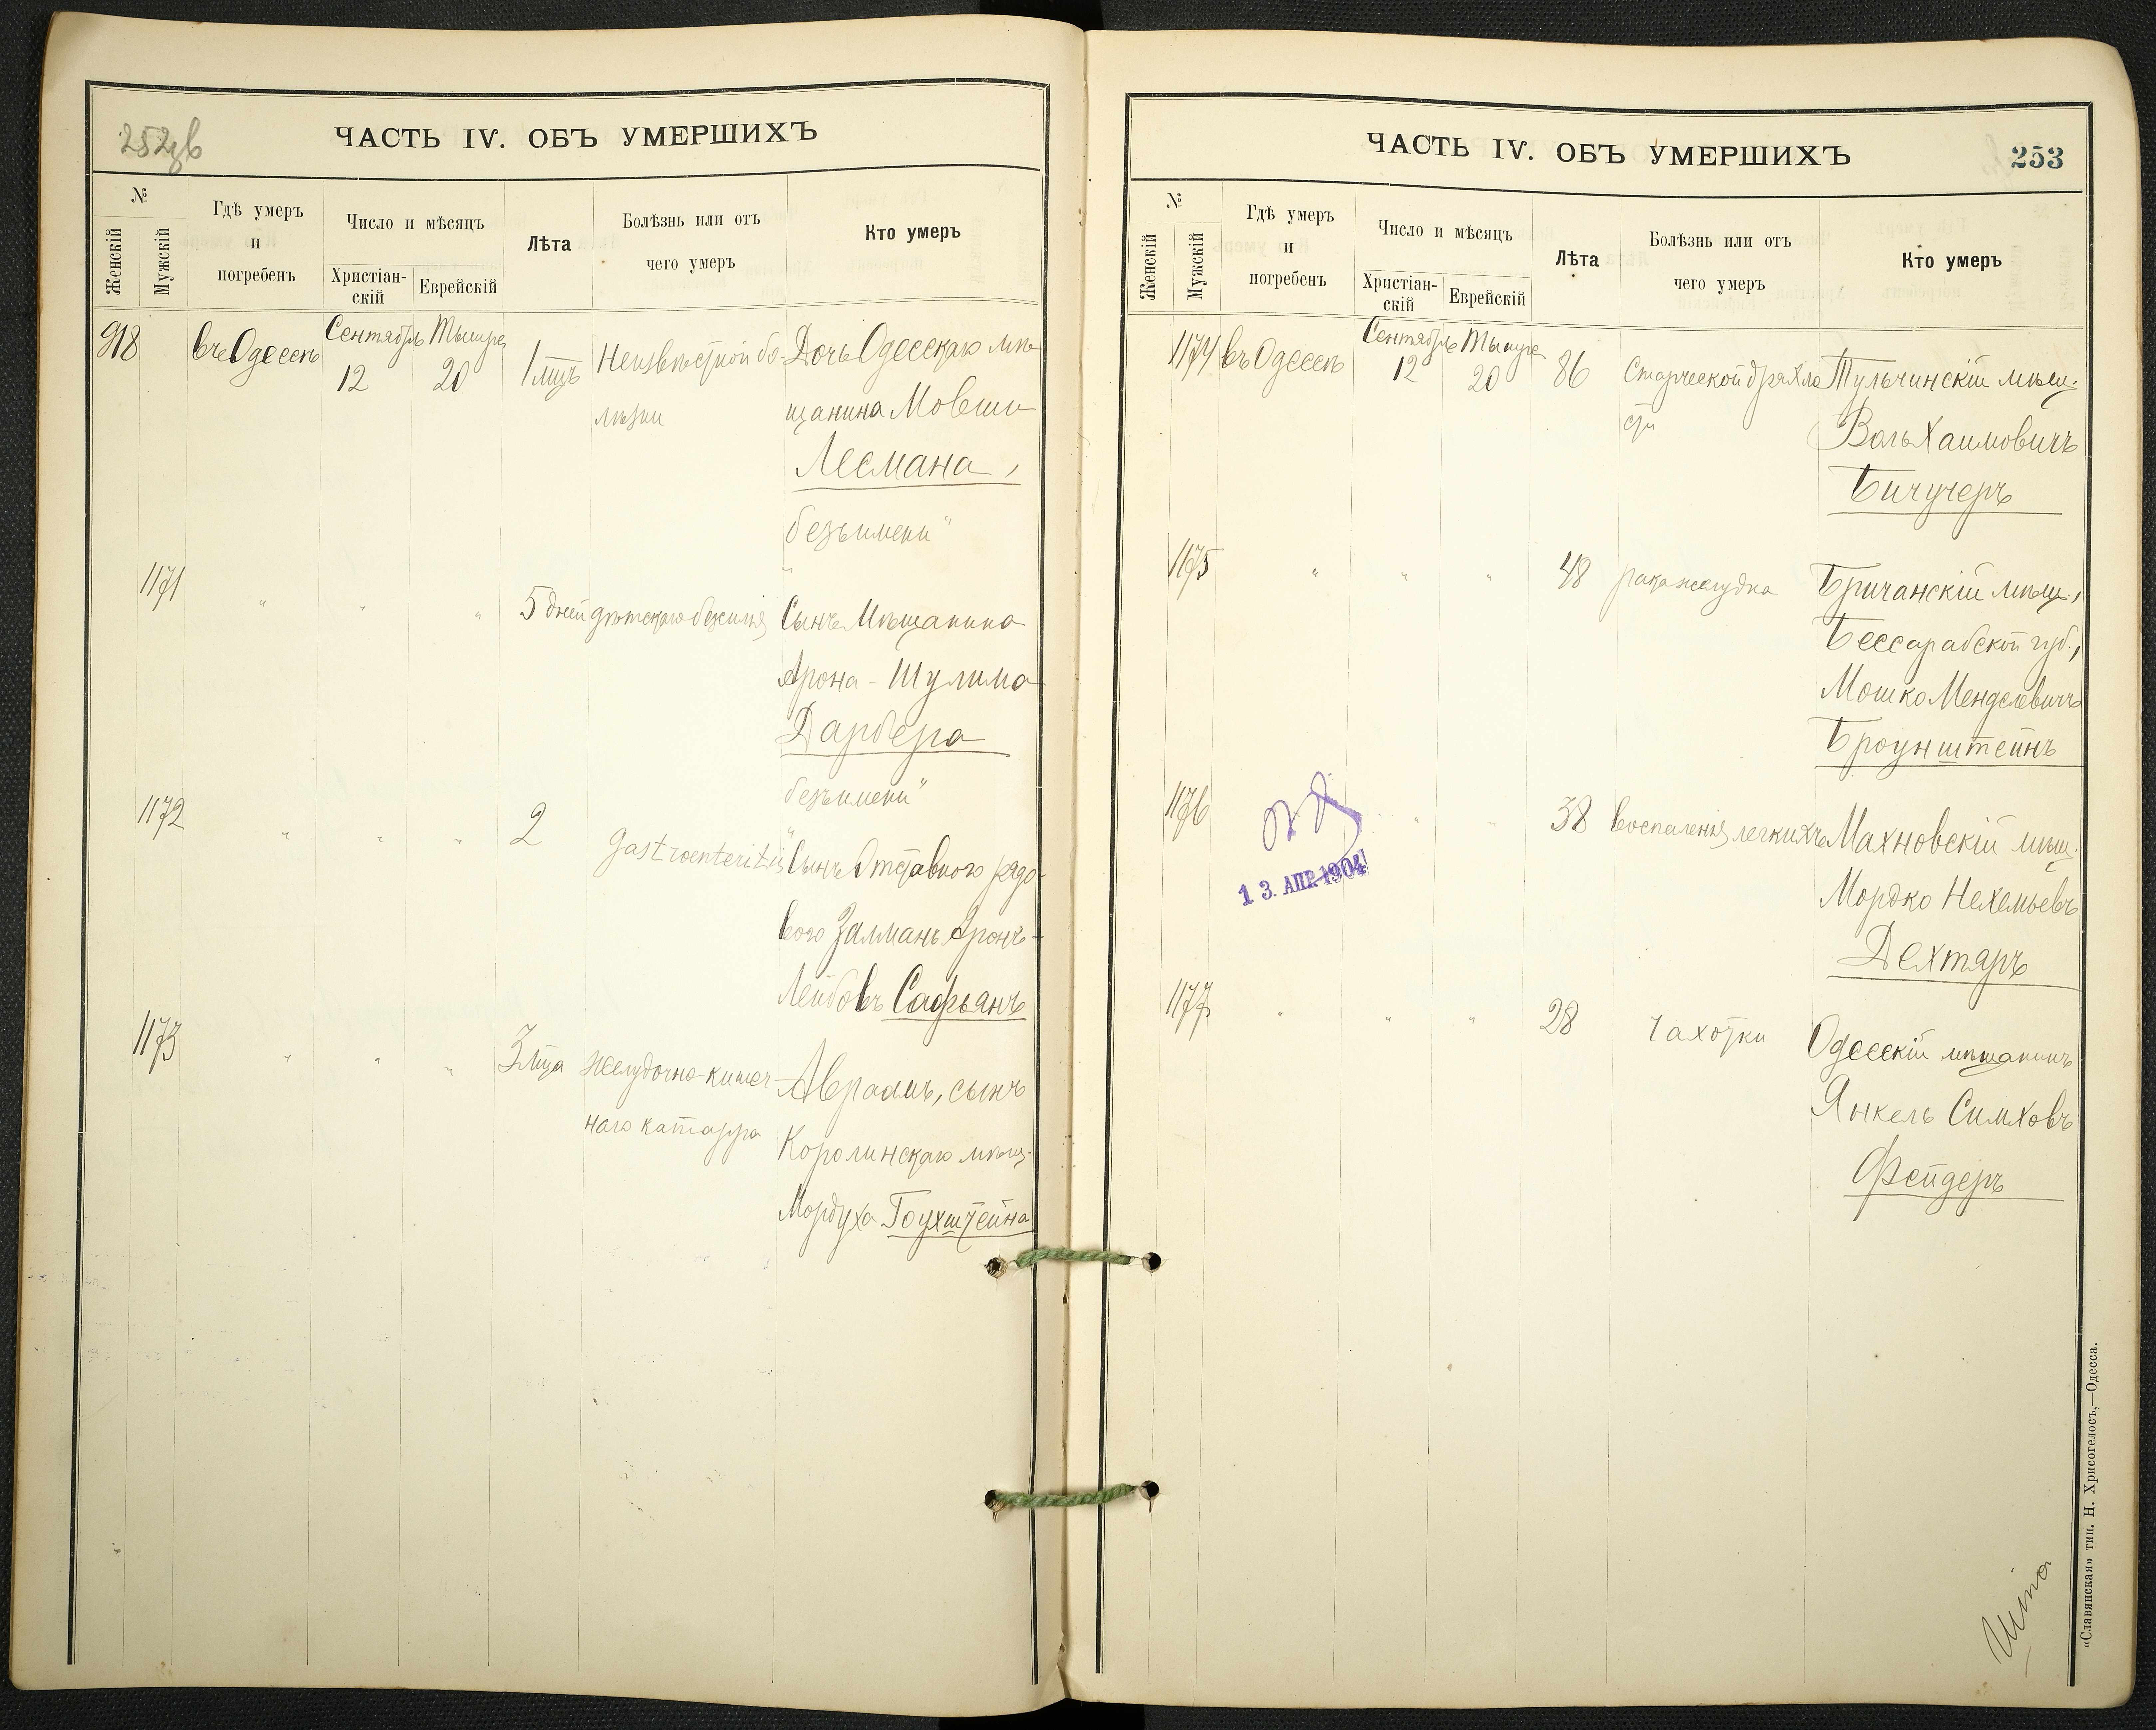 252об
ЧАСТЬ IV. ОБЪ УМЕРШИХЪ
№
Женскій
Мужскій
Гдѣ умеръ
и
погребенъ
Число и мѣсяцъ
Христіан-
скій
Еврейскій
Лѣта
Болѣзнь или отъ
чего умеръ
Кто умеръ
918
въ Одессѣ
Сентябрь
12
Тышре
20
1 мцъ
Неизвѣстной бо-
лѣзни
Дочь Одесскаго мѣ-
щанина Мовши
Лесмана,
"безъ имени"
1171
"
"
"
5 дней
дѣтскаго безсилія
Сынъ Мѣщанина
Арона-Шулима
Дарбера
"безъ имени"
1172
"
"
"
2
gastroenteritis
Сынъ Отставного рядо-
вого Залманъ Аронъ-
Лейбовъ Сафьянъ
1173
"
"
"
3 мца
желудочно-кишеч-
наго катарра
Авраамъ, сынъ
Королинскаго мѣщ.
Мордуха Гоухштейна
ЧАСТЬ IV. ОБЪ УМЕРШИХЪ
253
№
Женскій
Мужскій
Гдѣ умеръ
и
погребенъ
Число и мѣсяцъ
Христіан-
скій
Еврейскій
Лѣта
Болѣзнь или отъ
чего умеръ
Кто умеръ
1174
въ Одессѣ
Сентябрь
12
Тышре
20
86
Старческой дряхло
сти
Тульчинскій мѣщ.
Воль Хаимовичъ
Бичучеръ
1175
"
"
"
48
рака желудка
Бричанскій мѣщ.,
Бессарабской губ.,
Мошко Менделевичъ
Броунштейнъ
1176
13. АПР. 1904
"
"
38
воспаленія легкихъ
Махновскій мѣщ.
Мордко Нехемьевъ
Дехтяръ
1177
"
"
"
28
Чахотки
Одесскій мѣщанинъ
Янкель Симховъ
Фейдеръ
«Славянская» тип. Н. Хрисогелосъ,—Одесса.